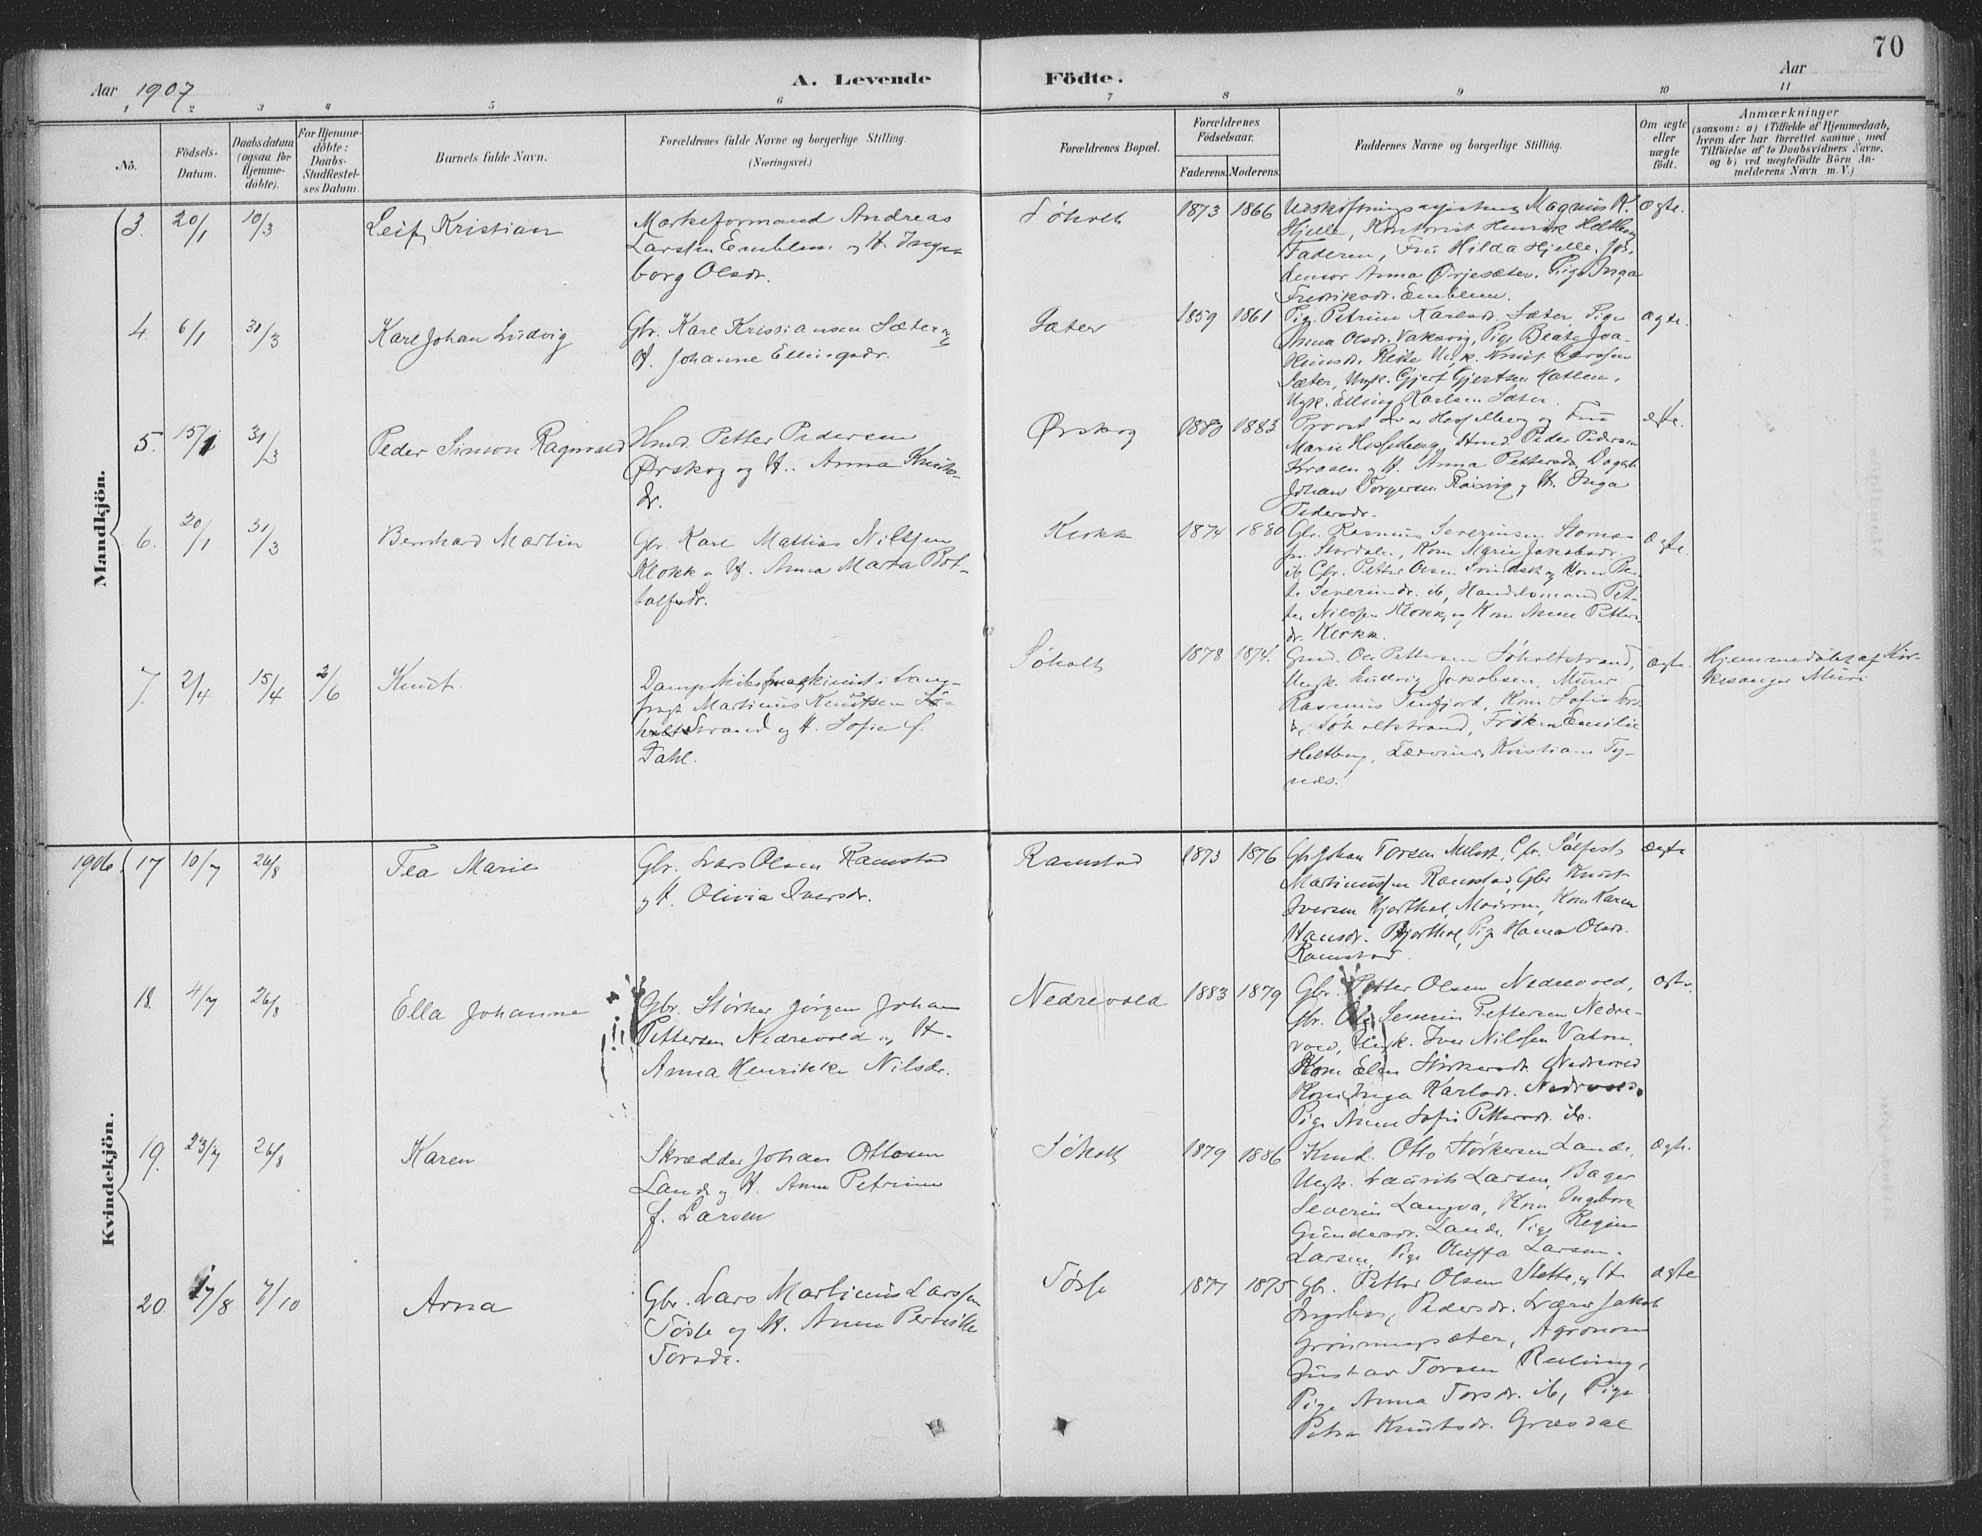 70
Aar 1907
A. Levende Födte.
Aar
1 2 3 4 5 6 7 8 9 10 11
No.
Fødsels-
Datum.
Daabsdatum
(ogsaa for
Hjemme-
döbte).
For Hjemme-
döbte:
Daabs-
Stadfæstel-
ses Datum.
Barnets fulde Navn.
Forældrenes fulde Navne og borgerlige Stilling.
(Næringsvei.)
Forældrenes Bopæl.
Forældrenes
Födselsaar.
Faderens. Moderens.
Faddernes Navne og borgerlige Stilling.
Om ægte
eller
uægte
födt.
Anmærkninger
(saasom: a) i Tilfælde af Hjemmedaab,
hvem der har forrettet samme, med
Tilföielse af to Daabsvidners Navne,
og b) ved uægtefödte Börn An-
melderens Navn m. V.)
Mandkjön.
3. 20/1 10/3
Leif Kristian
Andreas
Larsen Emblem og H. Inge-
borg Olsdr.
Søholt
1873 1866
Magnus K.
Hjelle, Kontorist Henrik Heltberg
Faderen, Fru Hilda Hjelle,
Anna Ørjesæter, Pige Inga
Fredriksdr. Emblem.
ægte.
4 6/1 31/3
Karl Johan Ludvig
Gbr. Karl Kristiansen Sæter og
H. Johanne Ellingsdr.
Sæter
1859 1861
Pige Petrine Karlsdr. Sæter, Pige
Anna Olsdr. Vaksvig, Pige Beate Joa-
Ungk. Knut Larssen
Sæter, Ungk. Gjert Gjertsen
Ungk. Elling Karlsen Sæter.
ægte.
5. 15/1 31/3
Peder Simon Ragnvald
Hmd. Petter Pedersen
Ørskog og H. Anna Knuts-
dr.
Ørskog
1880 1883
Provst Hesselberg og Fru
Marie Hesselberg, Hmd. Peder Pedersen
og H. Anna Pettersdr.
Johan Torgersen og H. Inga
Pedersdr.
ægte.
6. 20/1 31/3
Bernhard Martin
Gbr. Karl Mathias Nilssen
Klokk og H. Anna Marta Bot-
talfsdr.
Klokk
1874 1880
Gbr. Rasmus Severinsen
Kone Marie Jakobsdr.
ib, Gbr. Petter Olsen og Kone Be-
te Severinsdr. ib, Handelsmand Pet-
ter Nilssen Klokk, og Kone Anne Petters-
dr. Klokk.
ægte.
7. 2/4 15/4 2/6
Knut.
Dampskibsmaskinist i Lang-
fragt Martinus Knutsen Sø-
holtstrand og H. Sofie f.
Dahl.
Søholt
1878 1874.
Ole Pettersen Søholtstrand,
Ungk. Ludvig Jakobsen, Murer
Rasmus Tenfjord, Kone Sofie
Søholtstrand, Frøken Emilie
Heltberg, Lærerinde Kristiane Ty-
nes.
ægte.
Hjemmedøbt af Kir-
kesanger Muri
Kvindekjön.
1906. 17 10/7 26/8
Tea Marie
Gbr. Lars Olsen Ramstad
og H. Olivia Iversdr.
Ramstad
1873 1876
Gbr. Johan Torsen Gbr. Sølfest
Martinussen Ramstad, Gbr. Knut
Iversen Hjorthol, Moderen, Kone Karen
Hansdr. Hjorthol, Pige Hanna Olsdr.
Ramstad.
ægte
18. 4/7 26/8
Ella Johanne
Gbr. Størker Jørgen Johan
Pettersen Nedrevold og H.
Anna Henrikke Nilsdr.
Nedrevold
1883 1879
Gbr. Petter Olsen Nedrevold,
Gbr. Ole Severin Pettersen Nedre-
vold, Ungk. Iver Nilssen Vatne,
Kone Elen Størkersdr. Nedrevold
Kone Inga Karlsdr. Nedrevold.
Pige Anne Sofie Pettersdr. ib.
ægte.
19. 23/7 26/8
Karen
Skrædder Johan Ottosen
Lande og H. Anne Petrine
f. Larsen
Søholt
1879 1886
Kmd. Otto Størkersen Lande,
Ungk. Laurits Larsen, Bager
Severin Langva, Kone Ingeborg
Gundersdr. Lande, Pige Regine
Larsen, Pige Oluffa Larsen.
Ægte.
20. 17/8 7/10
Arna
Gbr. Lars Martinus Larssen
Tøsse og H. Anne Pernille
Torsdr.
Tøsse
1877 1875
Gbr. Petter Olsen Stette, og H
Ingeborg Pedersdr. Lærer Jakob
Grønningsæter, Agronom
Gustav Torsen
Pige Anna Torsdr. ib, Pige
Petra Knutsdr. Græsdal
ægte